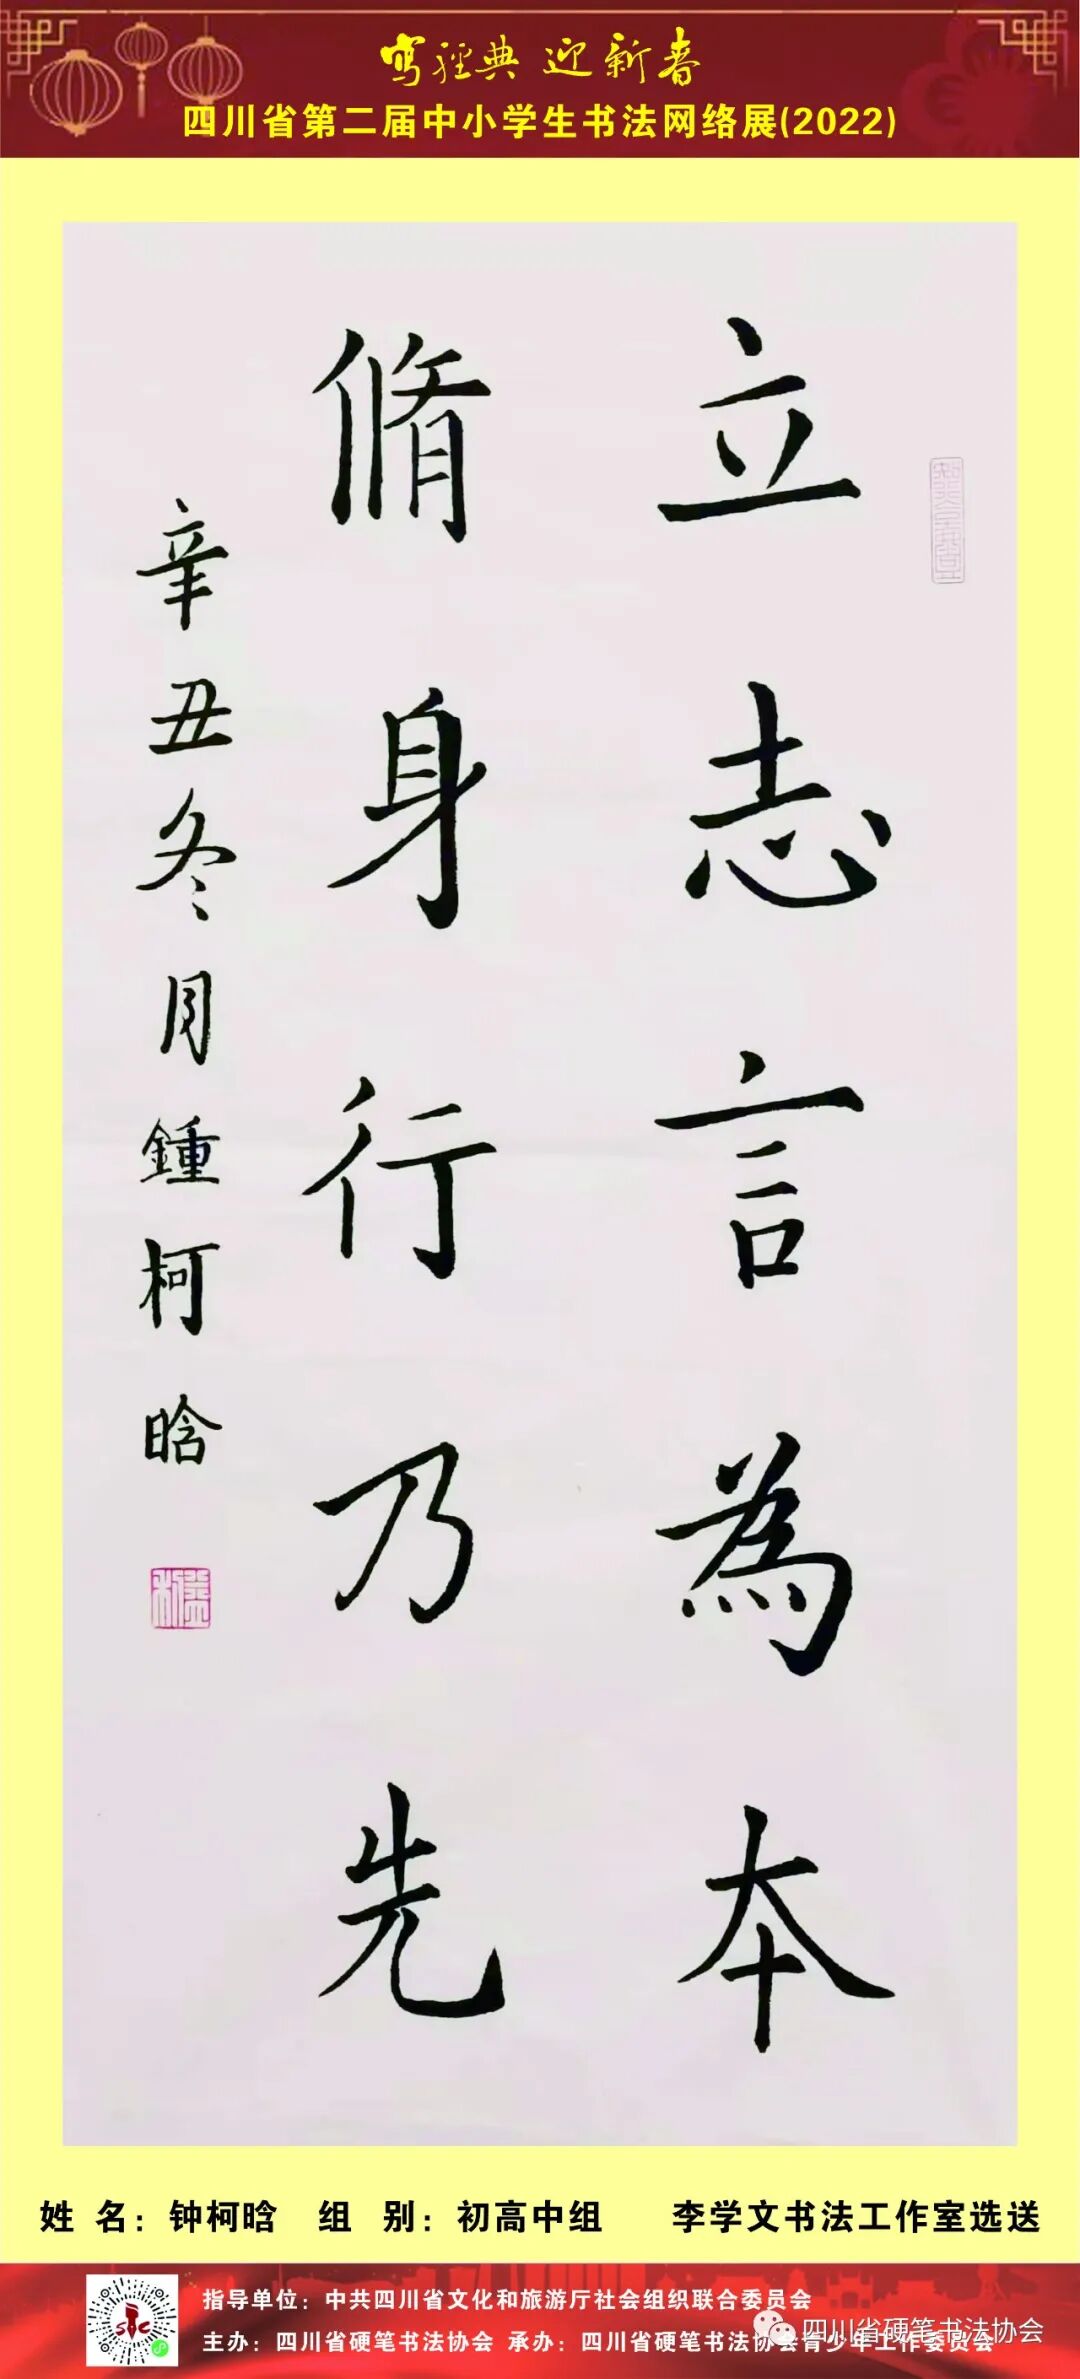 写經典 迎新春
四川省第二届中小学生书法网络展(2022)
立志言為本
脩身行乃先
辛丑冬月鍾柯晗
姓 名：钟柯晗 组 别：初高中组 李学文书法工作室选送
指导单位：中共四川省文化和旅游厅社会组织联合委员会
主办：四川省硬笔书法协会 承办：四川省硬笔书法协会青少年工作委员会
四川省硬笔书法协会